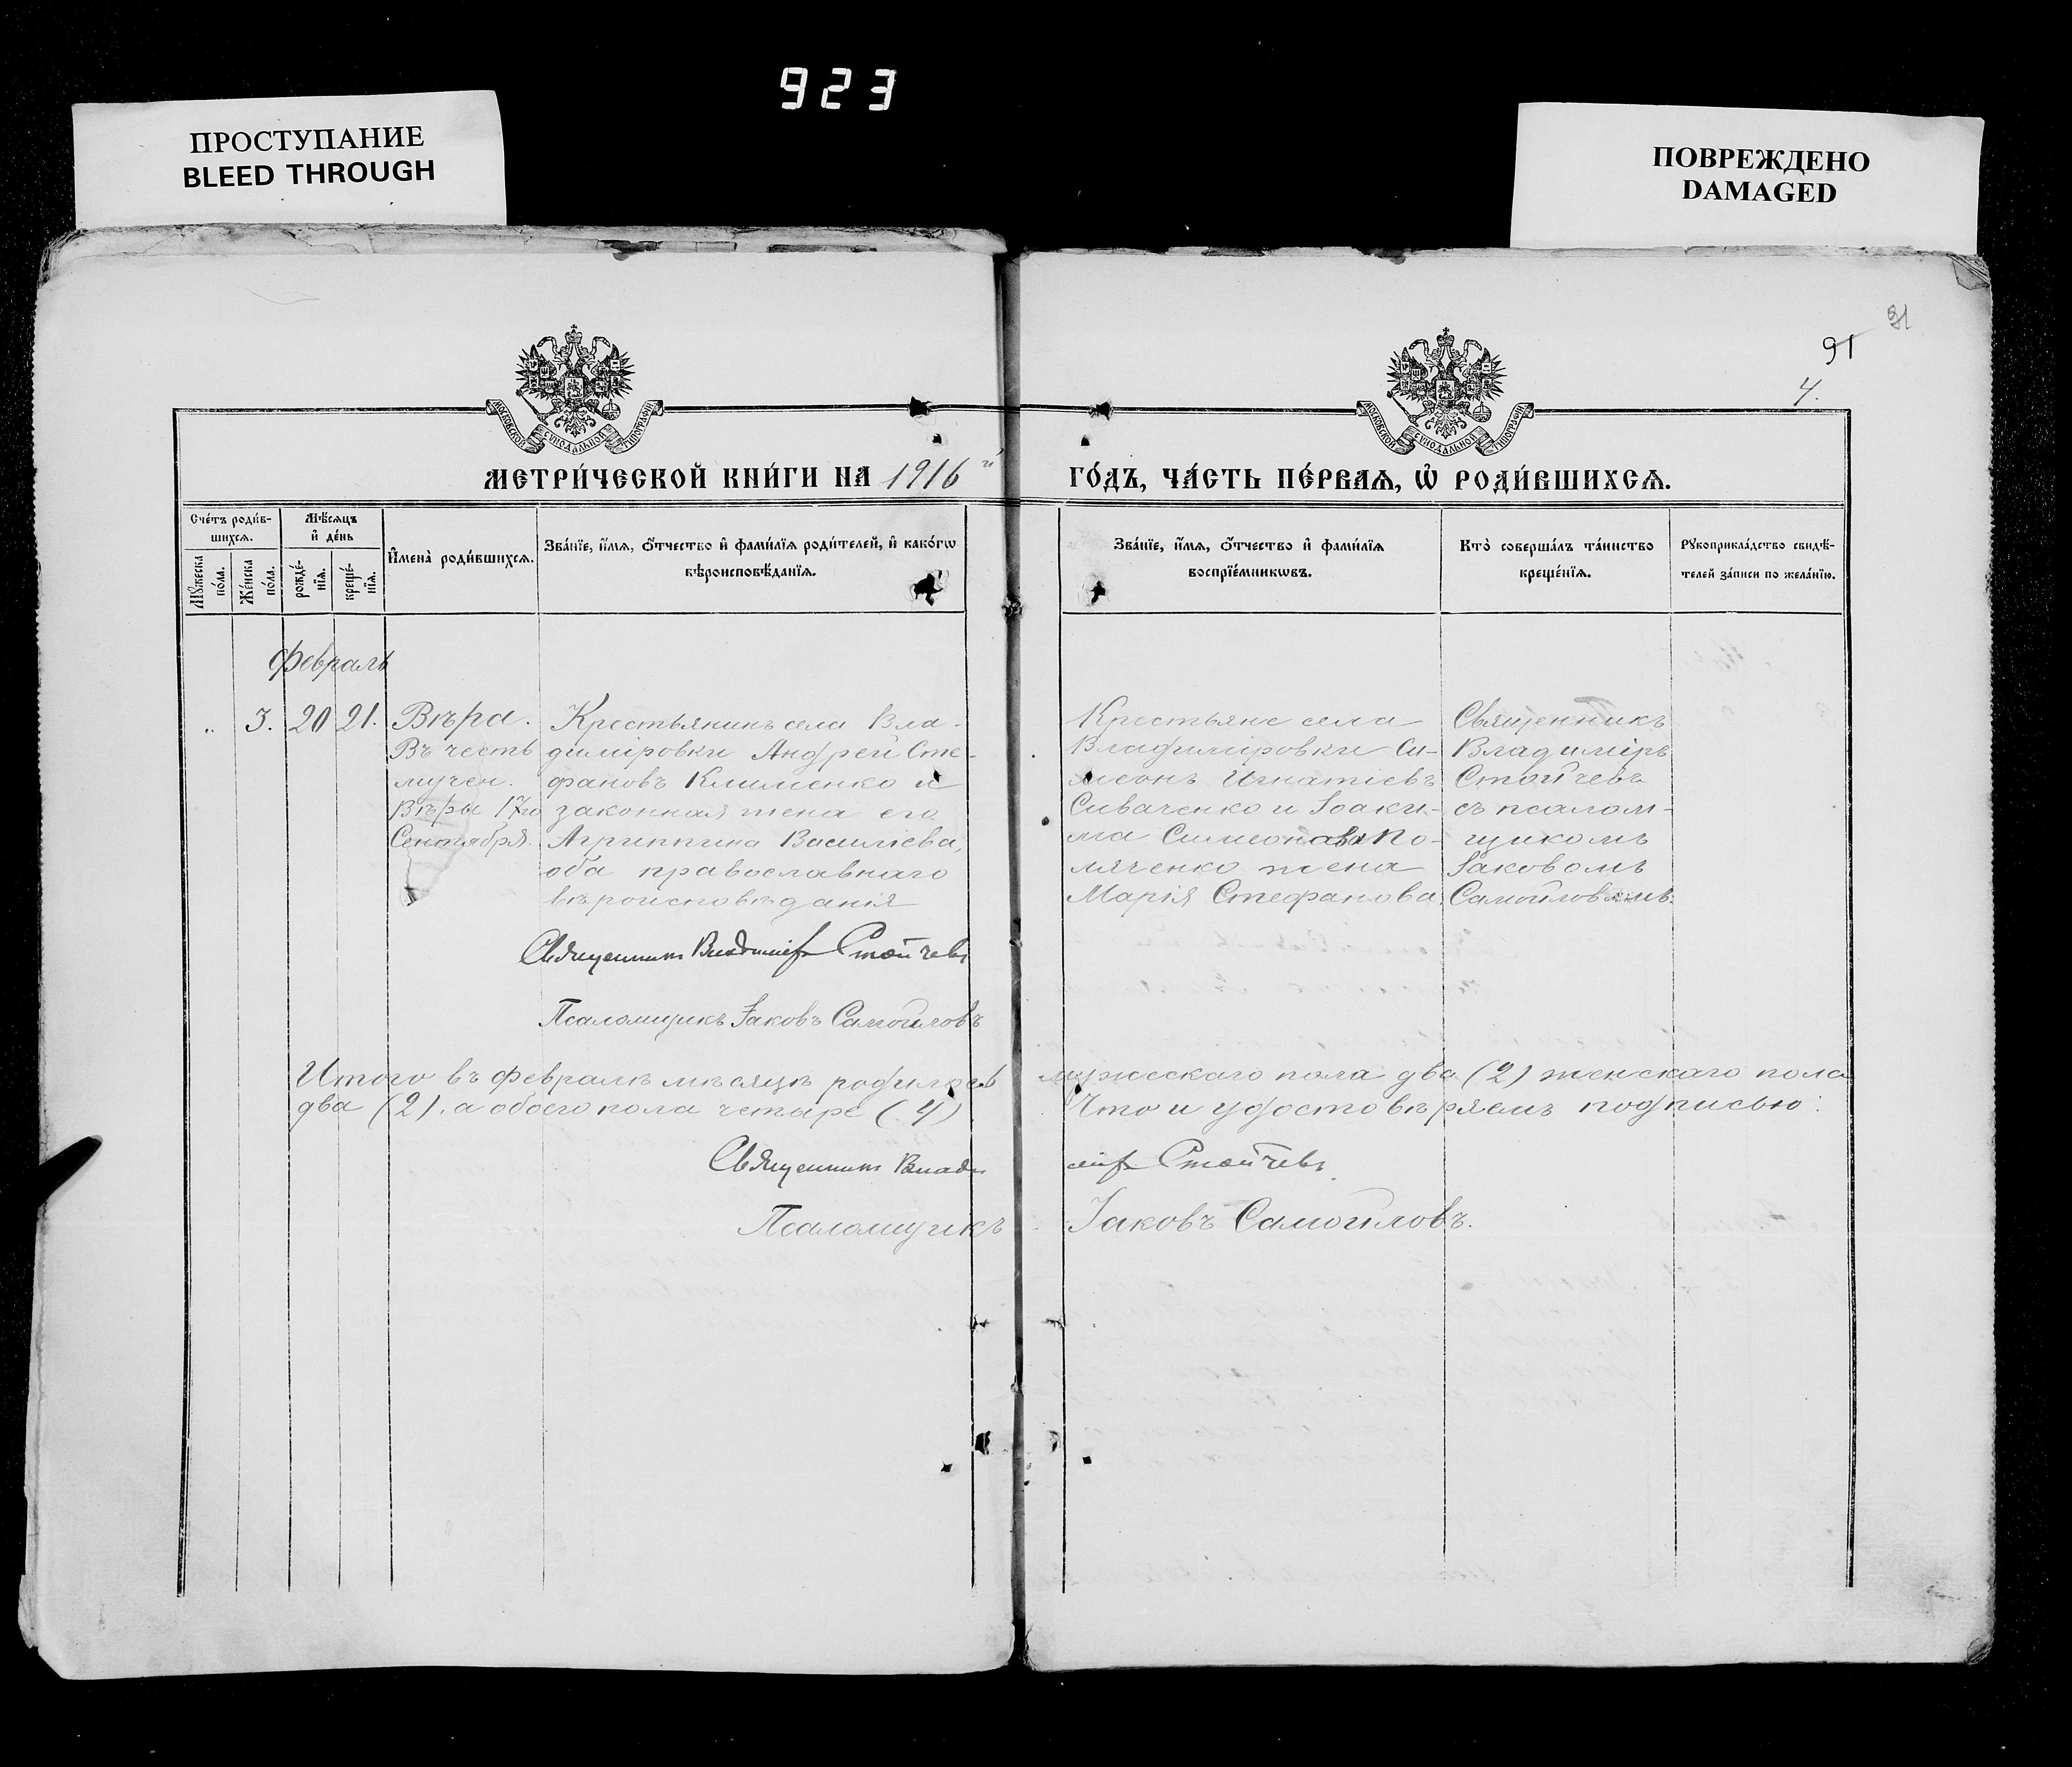 923
ПРОСТУПАНИЕ
BLEED THROUGH
ПОВРЕЖДЕНО
DAMAGED
91
91
4.
МОСКОВСКОЙ СѴНОДАЛЬНОЙ ТИПОГРАФІИ
МОСКОВСКОЙ СѴНОДАЛЬНОЙ ТИПОГРАФІИ
МЕТРИ́ЧЕСКОЙ КНИ́ГИ НА 1916й
ГО́ДЪ, ЧА́СТЬ ПЕ́РВАѦ, Ѡ҆ РОДИ́ВШИХСѦ.
Сче́тъ роди́в-
шихсѧ.
Мꙋ́жеска
по́ла.
Же́нска
по́ла.
Мѣ́сѧцъ
и҆ де́нь
рожде́-
нїѧ.
креще́-
нїѧ.
И҆мена̀ роди́вшихсѧ.
Зва́нїе, и҆́мѧ, ѻ҆́тчество и҆ фами́лїѧ роди́телей, и҆ како́гѡ
вѣроисповѣ́данїѧ.
Зва́нїе, и҆́мѧ, ѻ҆́тчество и҆ фами́лїѧ
воспрїе́мникѡвъ.
Кто̀ соверша́лъ та́инство
креще́нїѧ.
Рꙋкоприкла́дство свидѣ́-
телей за́писи по жела́нїю.
Февраль
„ 3. 20 21. Вѣра.
Въ честь
мучен.
Вѣры 17го
Сентября.
Крестьянинъ села Вла-
димировки Андрей Сте-
фановъ Клименко и
законная жена его
Агриппина Василіева,
оба православнаго
вѣроисповѣданія
Крестьяне села
Владиміровки Си-
меонъ Игнатіевъ
Сиваченко и Іоаки-
ма Симеонова По-
ляченко жена
Марія Стефанова.
Священникъ
Владиміръ
Стойчевъ
съ псалом-
щикомъ
Іаковомъ
Самойловымъ.
Священникъ Владиміръ Стойчевъ
Псаломщикъ Іаковъ Самойловъ
Итого въ февралѣ мѣсяцѣ родилось мужескаго пола два (2) женскаго пола
два (2), а обоего пола четыре (4) Что и удостовѣряемъ подписью:
Священникъ Владиміръ Стойчевъ
Псаломщикъ Іаковъ Самойловъ.